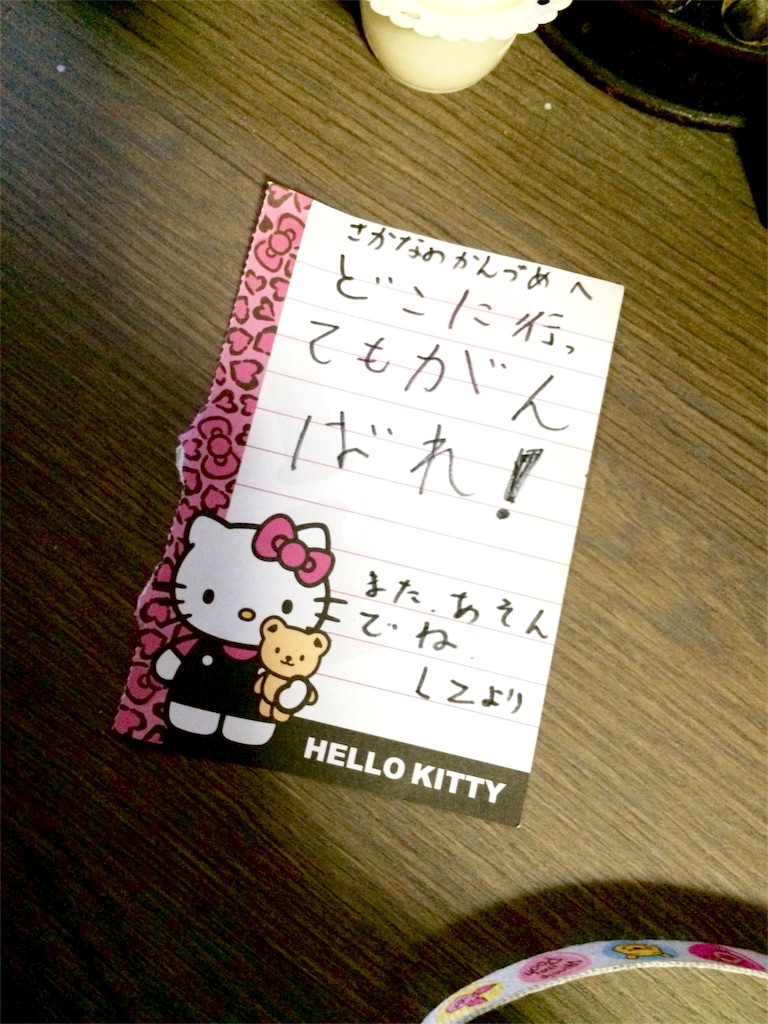 さかなのかんづめへ
どこに行っ
てもがん
ばれ!
また、あそん
でね.
しこより
HELLO KITTY